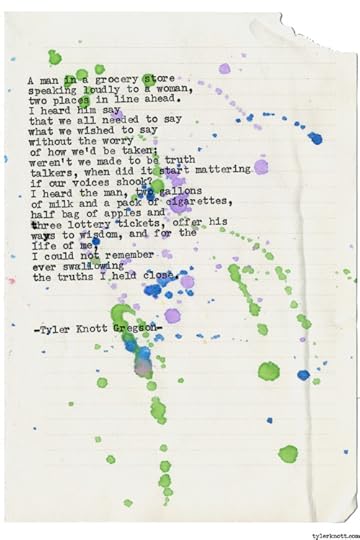 A man in a grocery store
speaking loudly to a woman,
two places in line ahead.
I heard him say
that we all needed to say
what we wished to say
without the worry
of how we'd be taken;
weren't we made to be truth
talkers, when did it start mattering
if our voices shook?
I heard the man, two gallons
of milk and a pack of cigarettes,
half bag of apples and
three lottery tickets, offer his
ways to wisdom, and for the
life of me,
I could not remember
ever swallowing
the truths I held close.
-Tyler Knott Gregson-
tylerknott.com